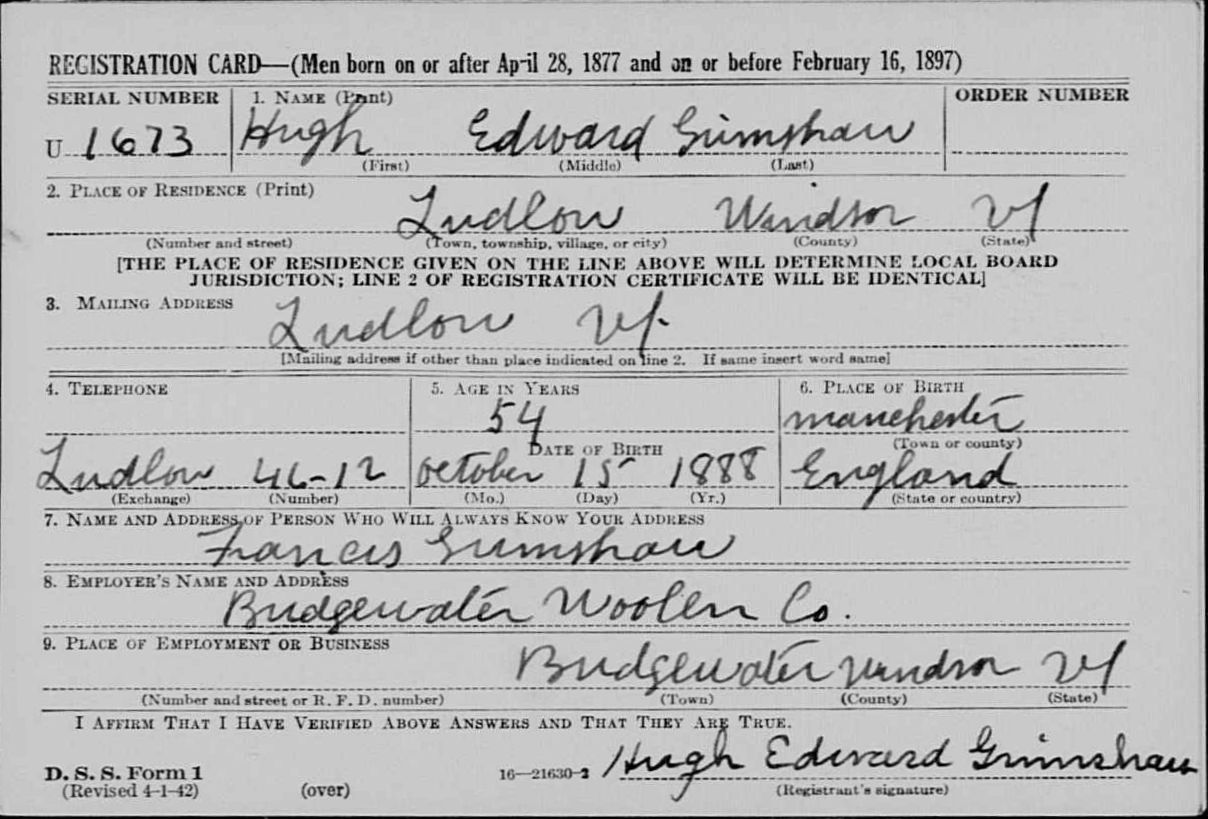 REGISTRATION CARD—(Men born on or after April 28, 1877 and on or before February 16, 1897)
SERIAL NUMBER 1. NAME (Print) ORDER NUMBER
U 1673 Hugh Edward Grimshaw
(First) (Middle) (Last)
2. PLACE OF RESIDENCE (Print)
Ludlow Windsor Vt
(Number and street) (Town, township, village, or city) (County) (State)
[THE PLACE OF RESIDENCE GIVEN ON THE LINE ABOVE WILL DETERMINE LOCAL BOARD
JURISDICTION; LINE 2 OF REGISTRATION CERTIFICATE WILL BE IDENTICAL]
3. MAILING ADDRESS
Ludlow Vt.
[Mailing address if other than place indicated on line 2. If same insert word same]
4. TELEPHONE 5. AGE IN YEARS 6. PLACE OF BIRTH
54 Manchester
DATE OF BIRTH (Town or county)
Ludlow 46-12 October 15 1888 England
(Exchange) (Number) (Mo.) (Day) (Yr.) (State or country)
7. NAME AND ADDRESS OF PERSON WHO WILL ALWAYS KNOW YOUR ADDRESS
Francis Grimshaw
8. EMPLOYER'S NAME AND ADDRESS
Bridgewater Woolen Co.
9. PLACE OF EMPLOYMENT OR BUSINESS
Bridgewater Windsor Vt
(Number and street or R. F. D. number) (Town) (County) (State)
I AFFIRM THAT I HAVE VERIFIED ABOVE ANSWERS AND THAT THEY ARE TRUE.
Hugh Edward Grimshaw
D. S. S. Form 1 16—21630-2
(Revised 4-1-42) (over) (Registrant's signature)